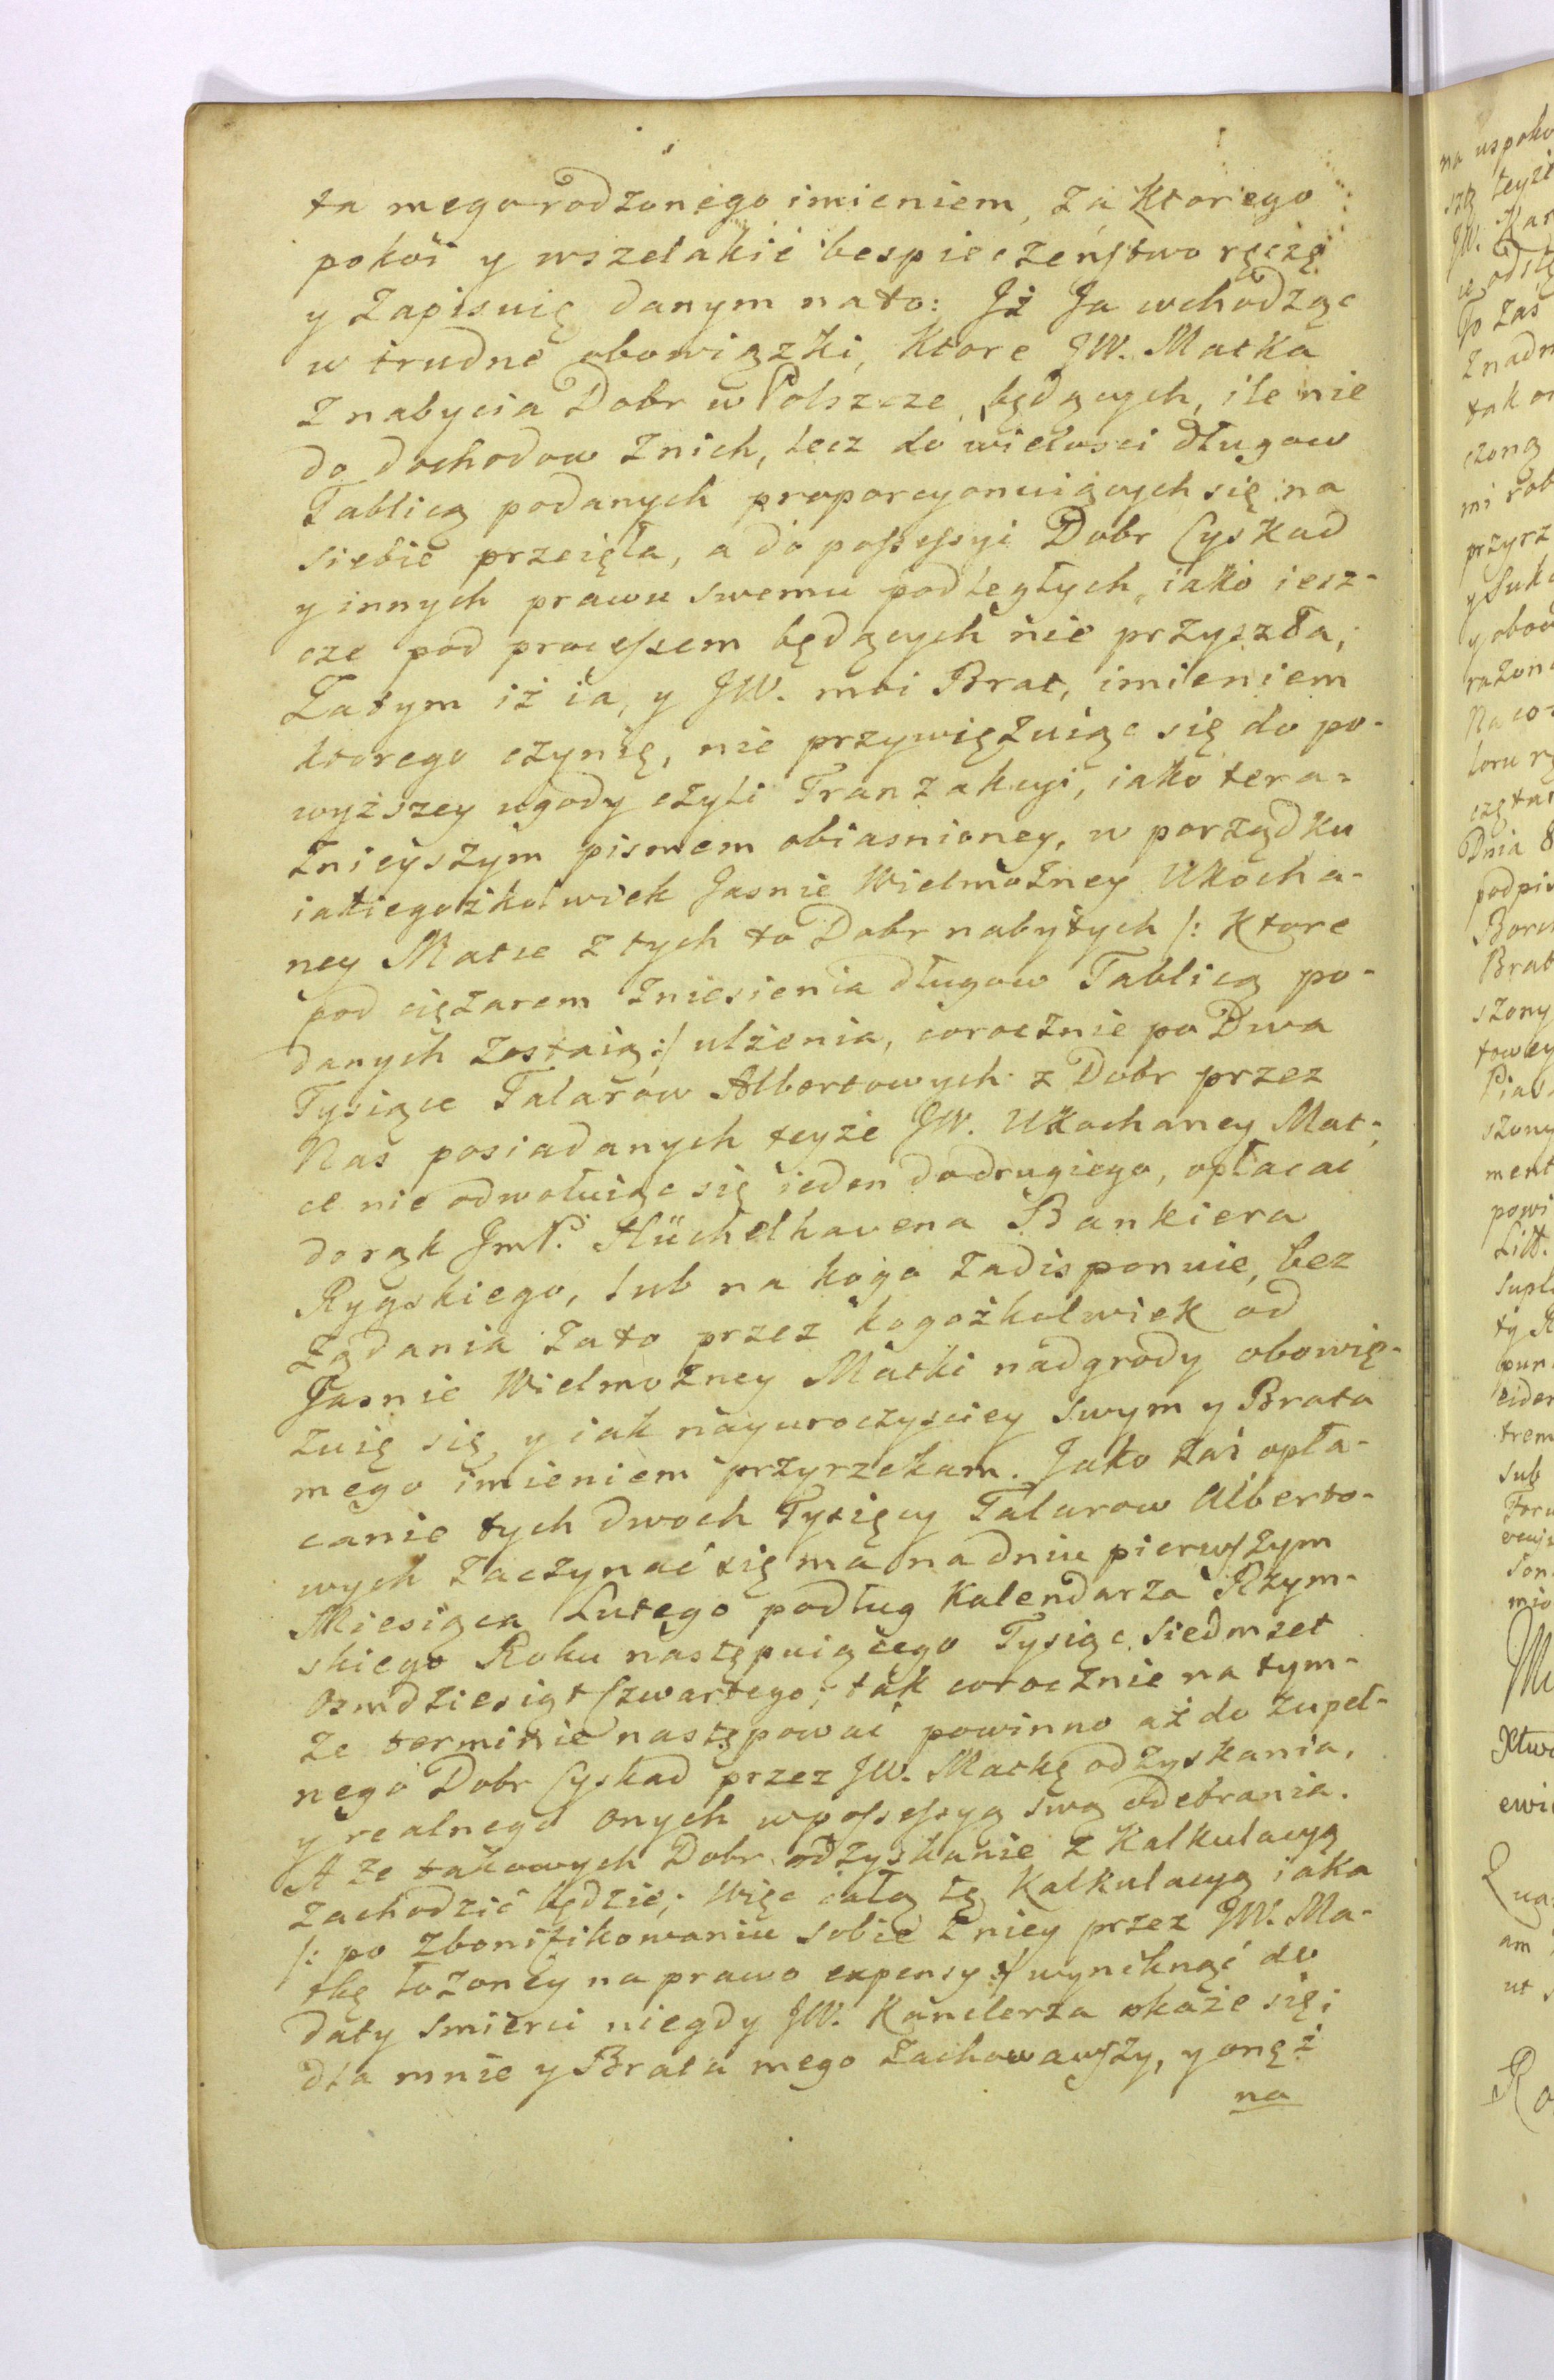 ta mego rodzonego imieniem, za ktorego
pokoi y wszelakie bespieczeństwo ręczę
y zapisuię danym na to: Iż Ja wchodząc
w trudne obowiązki, ktore JW. Matka
z nabycia Dobr w Polszcze będących, ile nie
do dochodow z nich, lecz do wielosci długow
Tablicą podanych proporcyonuiących się na
siebie przeięła, a do possessyi Dobr Cyskad
y innych prawu swemu podległych, iako iesz-
cze pod processem będących nie przyszła,
Zatym iż ia, y JW. moi Brat, imieniem
ktorego czynię, nie przywięzuiąc się do po-
wyższey ugody czyli Tranzakcyi, iako tera-
znieyszym pismem obiasnioney, w porządku
iakiegożkolwiek Jasnie Wielmożney Ukocha-
ney Matce z tych to Dobr nabytych /: ktore
pod ciężarem zniesienia długow Tablicą po-
danych zostaią :/ ulżenia, corocznie po Dwa
Tysiące Talarow Albertowych z Dobr przez
Nas posiadanych teyże JW. Ukochaney Mat-
ce nie odwołuiąc się ieden do drugiego, opłacac
do rąk JmP. Hüchelhavena Bankiera
Rygskiego, lub na kogo zadisponuie, bez
żądania za to przez kogożkolwiek od
Jasnie Wielmożney Matki nadgrody obowię-
zuię się, y iak nayuroczysciey swym y Brata
mego imieniem przyrzekam. Jako zaś opła-
canie tych dwoch Tysięcy Talarow Alberto-
wych zaczynać się ma na dniu pierwszym
Miesiąca Lutego podług Kalendarza Rzym-
skiego Roku następuiącego Tysiąc siedmset
osmdziesiąt czwartego; tak corocznie na tym-
że terminie następować powinno aż do zupeł-
nego Dobr Cyskad przez JW. Matkę odzyskania,
y realnego onych w possessyą swą odebrania.
A że takowych Dobr odzyskanie z Kalkulacyą
zachodzić będzie; Więc całą tę Kalkulacyą iaka
/: po zbonifikowaniu sobie z niey przez JW. Ma-
tkę łożoney na prawo expensy :/ wyniknąć do
daty smierci niegdy JW. Kanclerza okaże się;
dla mnie y Brata mego zachowawszy, y onęż
na